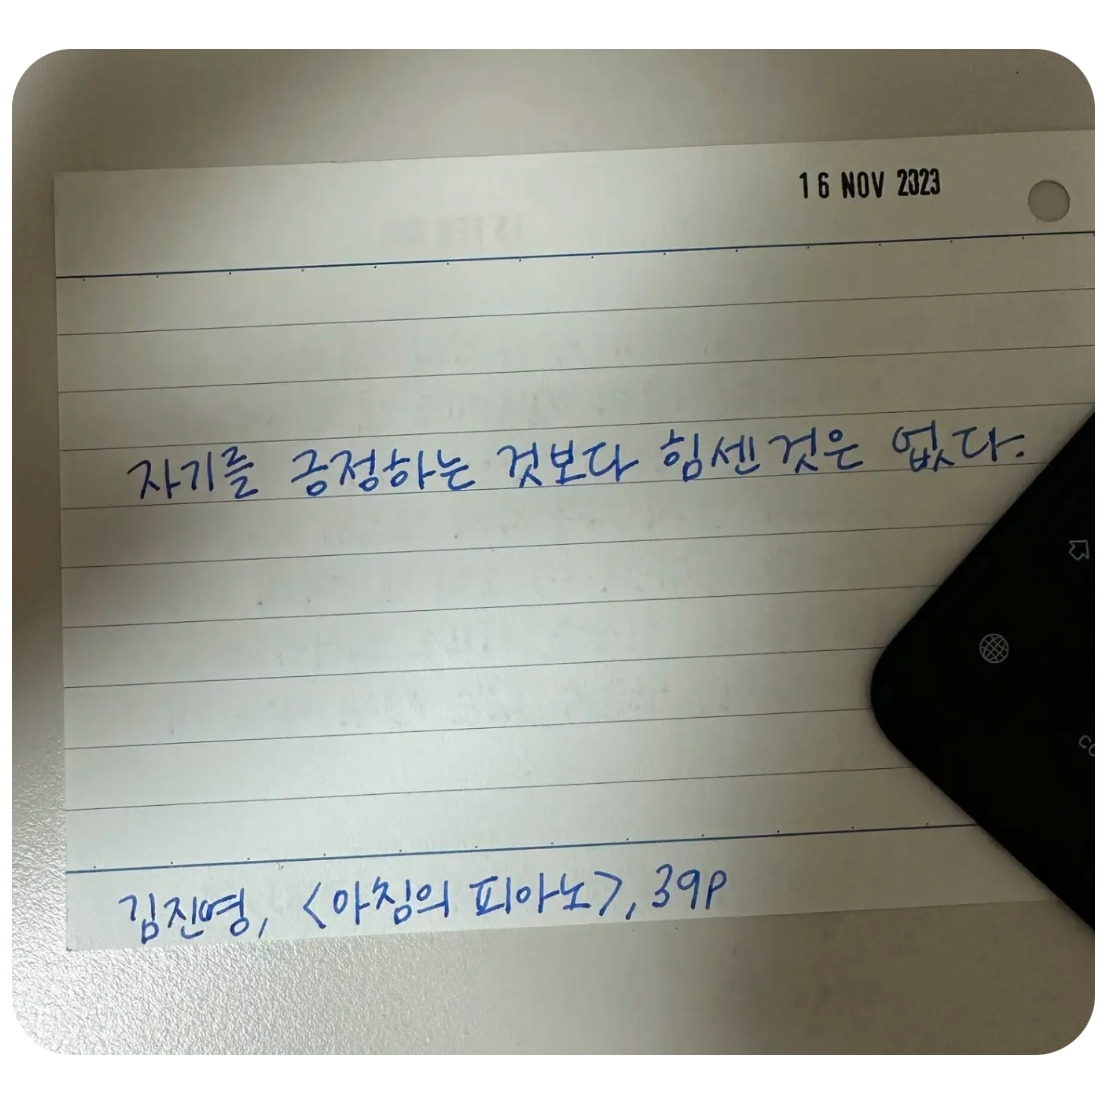 16 NOV 2323
자기를 긍정하는 것보다 힘센 것은 없다.
김진영, <아침의 피아노>, 39p